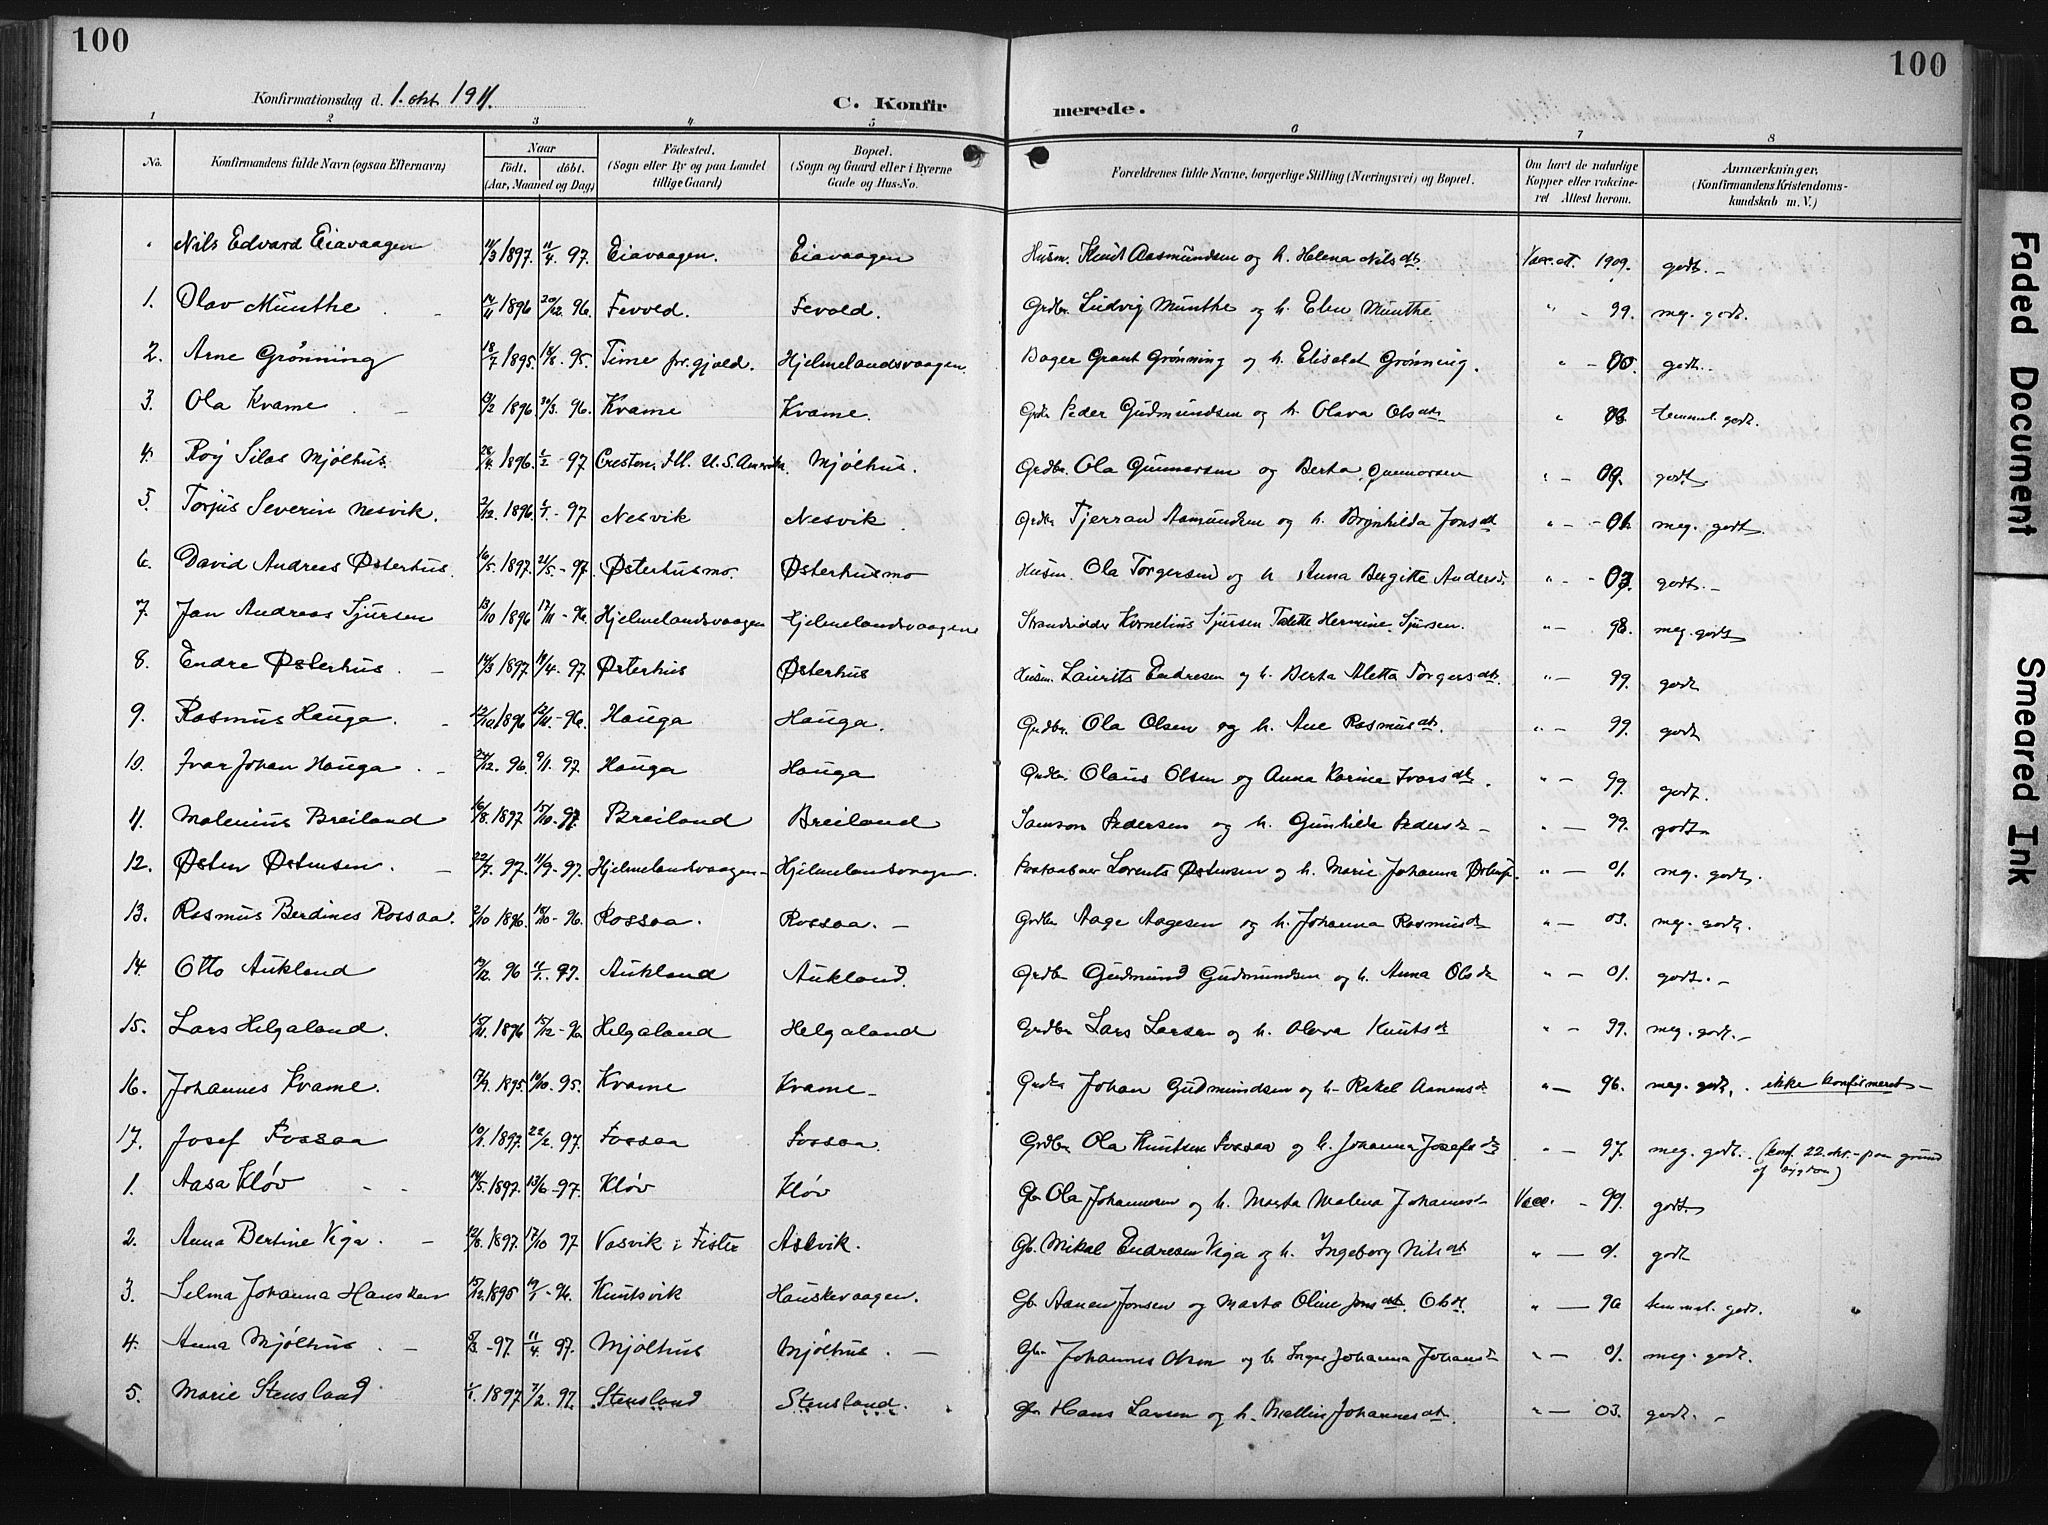 100
100
Konfirmationsdag d. 1. okt. 1911.
C. Konfirmerede.
1 2 3 4 5 6 7 8
No. Konfirmandens fulde Navn (ogsaa Efternavn) Naar Födt. döbt. (Aar, Maaned og Dag) Födested. (Sogn eller By og paa Landet tillige Gaard) Bopæl. (Sogn og Gaard eller i Byerne Gade og Hus-No. Forældrenes fulde Navne, borgerlige Stilling (Næringsvei) og Bopæl. Om havt de naturlige Kopper eller vakcineret Attest herom. Anmærkninger. (Konfirmandens Kristendomskundskab m. V.)
Nils Edvard Eiavaagen 11/3 1897. 11/4. 97. Eiavaagen. Eiavaagen Husm. Knut Aasmundsen og h. Helena Nilsdt. Vacc. att. 1909. godt. -
1. Olav Munthe 14/11 1896 20/12. 96. Fevold. Fevold. Grdbr. Ludvig Munthe og h. Elen Munthe " - 99. meg. godt.
2. Arne Grønning 18/7 1895. 18/8. 95. Time pr. gjæld. Hjelmelandsvaagen. Bager Grant Grønning og h. Elisabet Grønning. " - 00. godt.
3. Ola Kvame 1896. 20/3. 96. Kvame Kvame. Peder Gudmundsen og h. Olava Olsdt " 03. temmel. godt.
4. Roy Silas Mjølhus. 26/4. 1896. 1/2 - 97. Creston, Ill. U. S. Amerika Mjølhus. Grdbr. Ola Gunnarsen og Berta Gunnarsen " - 09. godt
5. Torjus Severin Nesvik. 2/12. 1896. 1/1. - 97 Nesvik Nesvik. Grdbr Tjerran Aamundsen og h. Brynhilda Jonsdt " - 01. meg. godt.
6. David Andreas Østerhus. 16/5. 1897. 21/5. - 97. Østerhusmo. Østerhusmo Husm. Ola Torgersen og h. Anna Bergitte Andersd. " - 03. godt. -
7. Jan Andreas Sjursen 13/10 1896 17/11 - 96. Hjelmelandsvaagen Hjelmelandsvaagen Strandsidder Kornelius Sjursen Talette Hermine Sjursen. " - 98. meg. godt
8. Endre Østerhus. 14/3 1897. 19/4. 97. Østerhus Østerhus Husm. Laurits Endresen og h. Berta Aletta Torgersdt. " - 99. godt
9. Rasmus Hauga. 12/10 1896 12/11. - 96. Hauga Hauga. Grdbr. Ola Olsen og h. Ane Rasmusdt. " - 99. godt
10. Ivar Johan Hauga. 12. 96. 9/1. 97. Hauga Hauga Grdbr Olaus Olsen og Anna Karine Ivarsdt. " - 99. godt.
11. Malenius Breiland 16/8. 1897 15/10. 97. Breiland Breiland Samson Pedersen og h. Gunhilde Pedersdt - " - 99. godt
12. Østen Østensen. 22/7. 97. 11/9. - 97. Hjelmelandsvaagen - Hjelmelandsvaagen. Lorents Østensen og h. Marie Johanna " - 01. meg. godt.
13. Rasmus Berdines Rossaa. 2/10 1896. 18/10. - 96. Rossaa. Rossaa. - Grdbr Aage Aagesen og h. Johanna Rasmusdt " - 03. meg. godt.
14. Otto Aukland 14/12. 96 97. Aukland Aukland. Grdbr Gudmund Gudmundsen og h. Anna Olsdt " - 01. godt. -
15. Lars Helgaland. 15/11. 1896 15/12 - 96. Helgaland Helgaland Grdbr Lars Larsen og h. Olava Knutsdt " - 99. meg. godt. -
16. Johannes Kvame. 17/9. 1895. 10/10. 95. Kvame Kvame - Grdbr Johan Gudmundsen og h. Rakel Aanensdt " - 96. meg. godt. ikke konfirmeret -
17. Josef Fossaa 10/1. 1897. 22/2. 97. Fossaa Fossaa. Grdbr Ola Knutsen Fossaa og h. Johanna Josefsdt " - 97. meg. godt. (konf. 22. okt. - paa grund af sygdom)
1. Aasa Kløv 14/5. 1897. 13/6 - 97. Kløv Kløv Gb Ola Johannesen og h. Marta Malena Johannesdt Vacc. - 99. godt.
2. Anna Bertine Viga. - 12/8. 1897. 17/10 97 Vasvik i Fister Askvik. Gb. Mikal Endresen Viga og h. Ingeborg Nilsdt " - 01. godt
3. Selma Johanna Hausken 15/12. 1895 19/1 - 96. Knutsvik Hauskevaagen. Gb Aanen Jonsen og Marta Oline Jonsdt. Olsdt. " - 96 temmel. godt.
4. Anna Mjølhus. - 5/3 - 97. 11/4. 97. Mjølhus Mjølhus. - Gb. Johannes Olsen og h. Inger Johanna Johansdt " - 01. meg. godt.
5. Marie Stensland 1/1. 1897 7/2. 97. Stensland Stensland. Gb Hans Larsen og h. Mallin Johannesdt. " - 03. godt. -
Faded Document
Smeared Ink